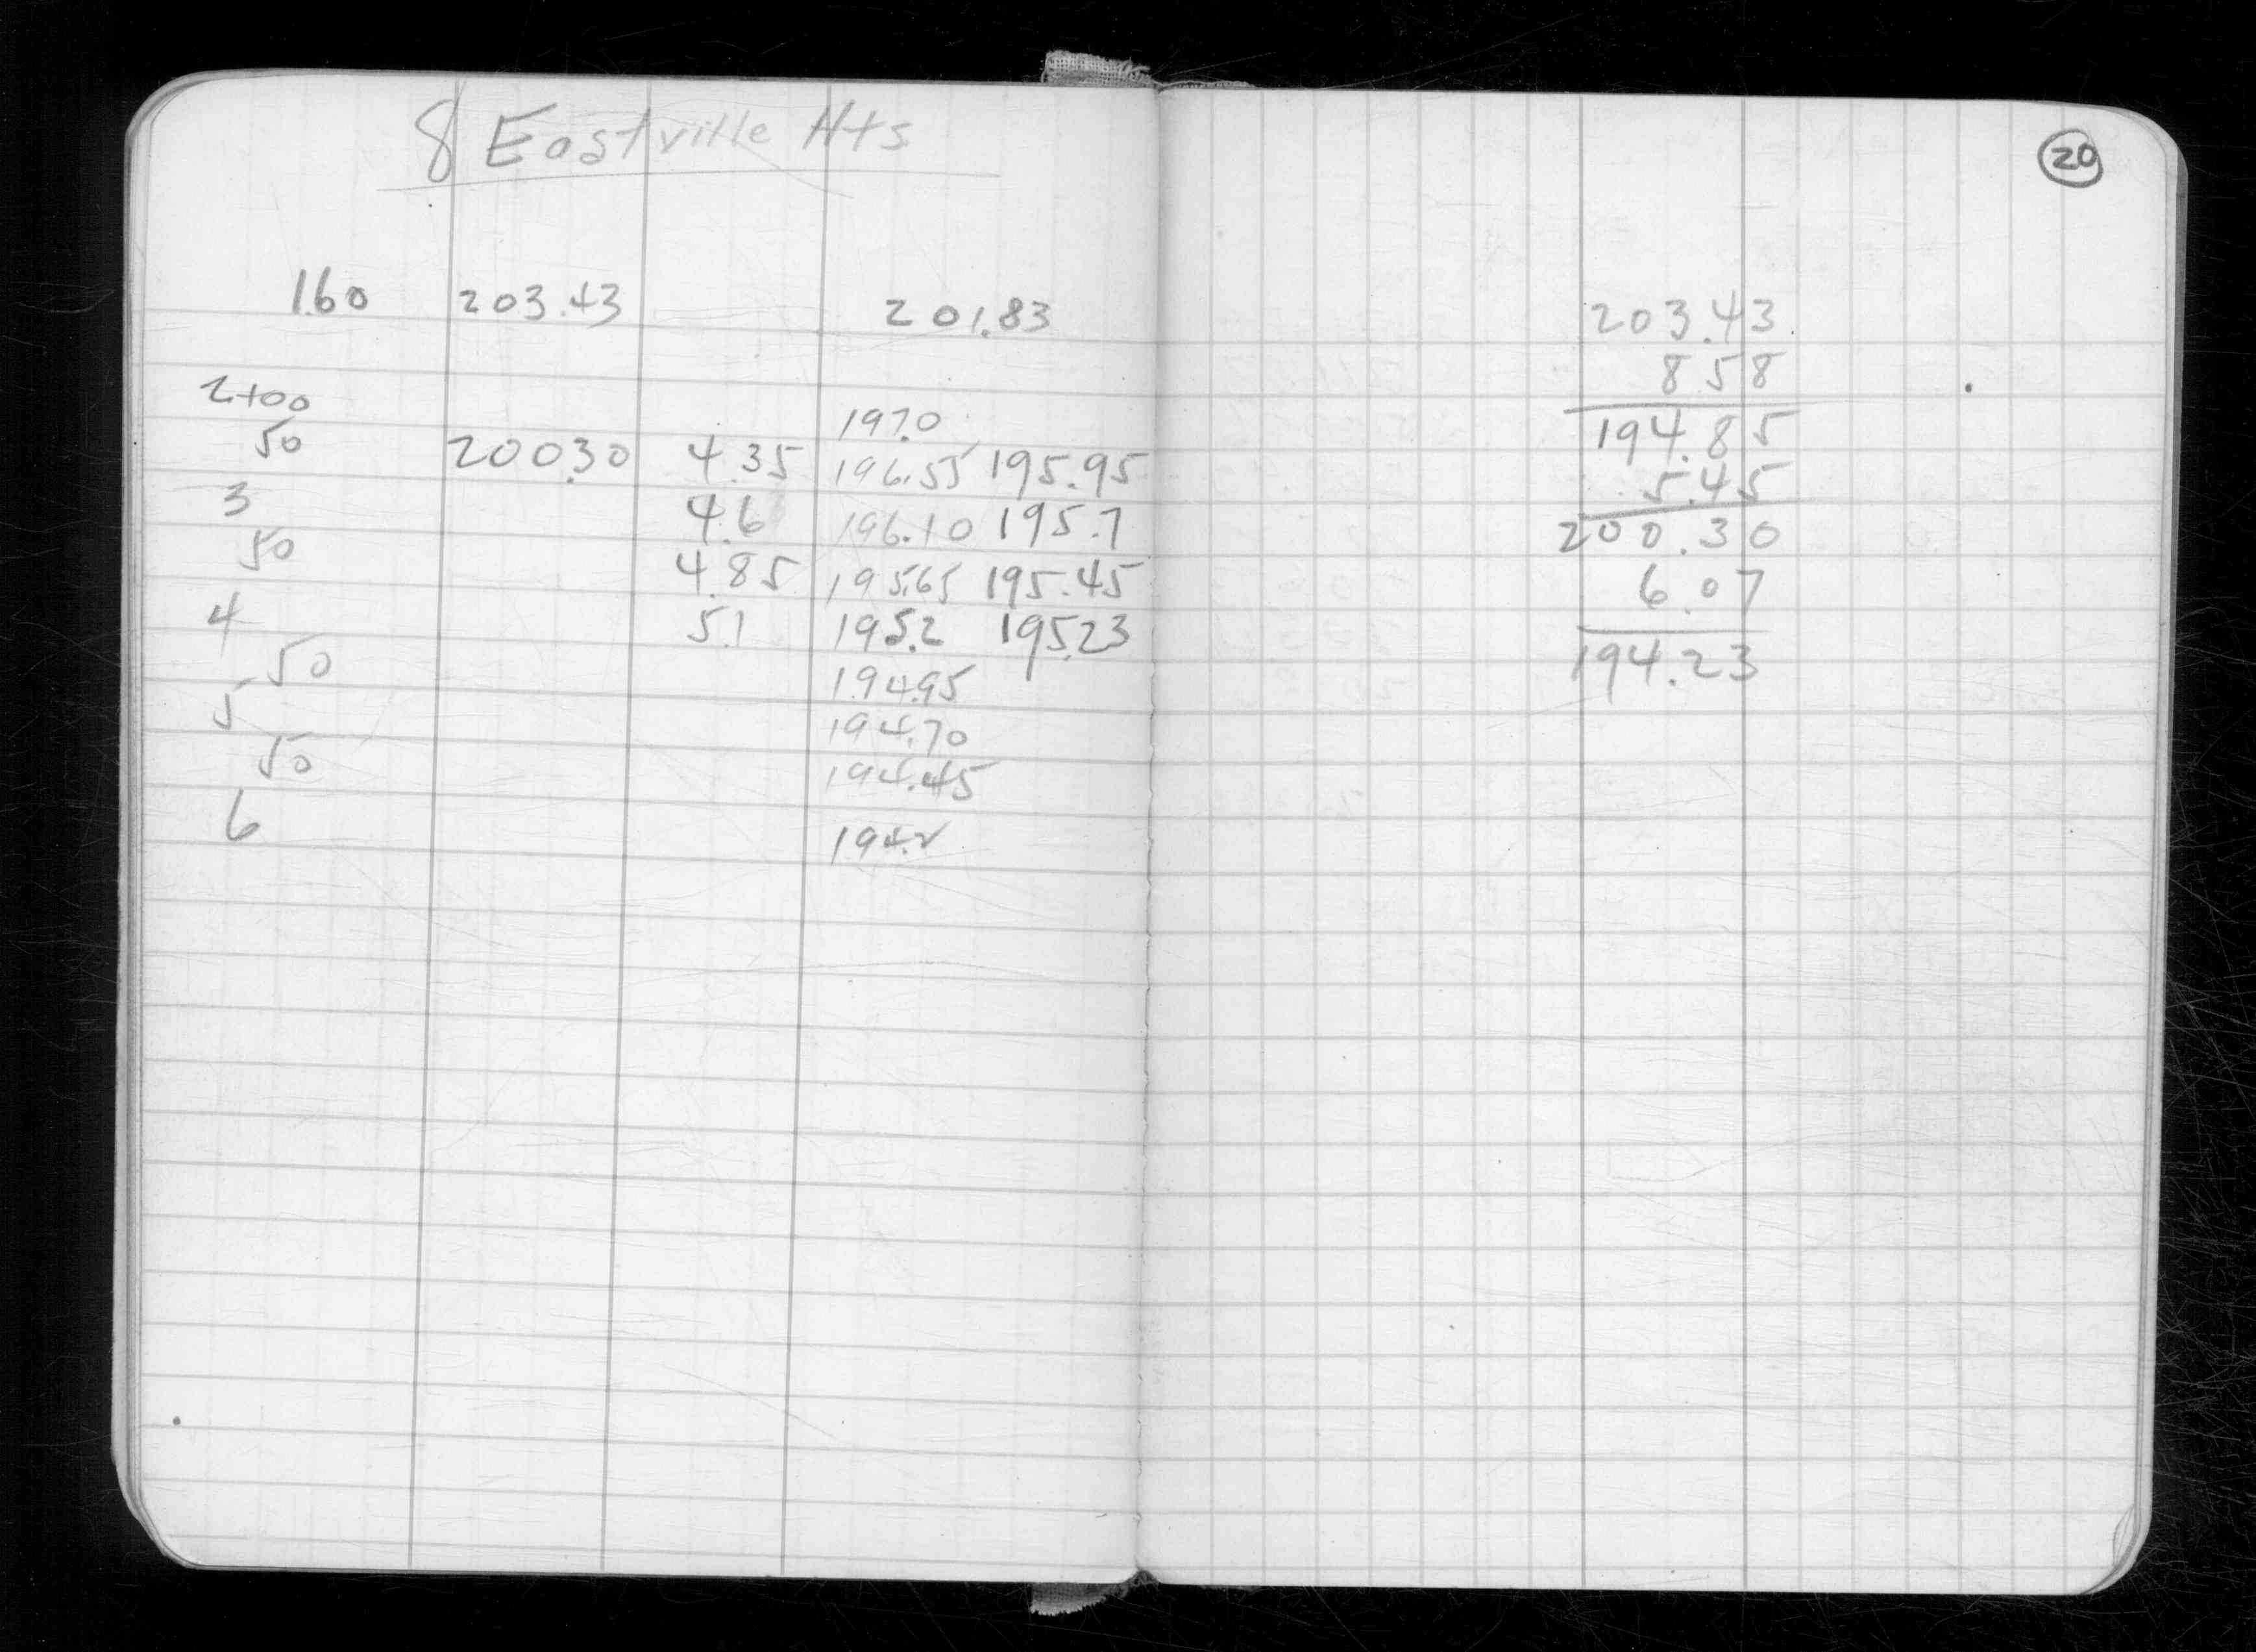 8 Eastville Hts
1.60 203.43 201.83
2+00 197.0
50 200.30 4.35 196.55 195.95
3 4.6 196.10 195.7
50 4.85 195.65 195.45
4 5.1 195.2 195.23
50 194.95
5 194.70
50 194.45
6 194.2
20
203.43
8 58
194.85
5.45
200.30
6.07
194.23